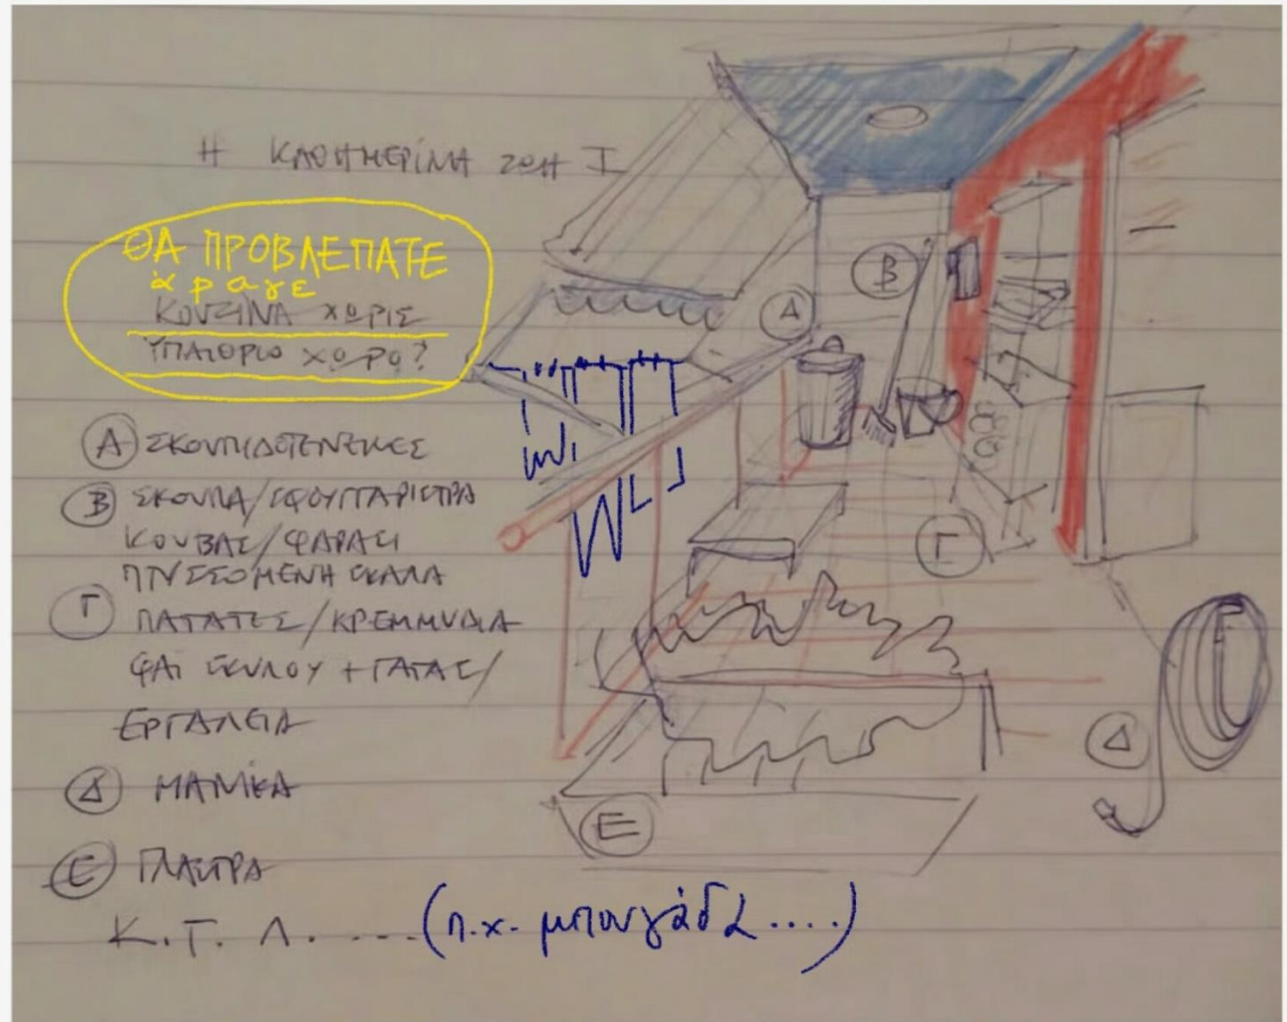 Η ΚΑΘΗΜΕΡΙΝΗ ΖΩΗ Ι
ΘΑ ΠΡΟΒΛΕΠΑΤΕ
άραγε
ΚΟΥΖΙΝΑ ΧΩΡΙΣ
ΥΠΑΙΘΡΙΟ ΧΩΡΟ?
Α ΣΚΟΥΠΙΔΟΤΕΝΕΚΕΣ
Β ΣΚΟΥΠΑ/ΣΦΟΥΓΓΑΡΙΣΤΡΑ
ΚΟΥΒΑΣ/ΦΑΡΑΣΙ
ΠΤΥΣΣΟΜΕΝΗ ΣΚΑΛΑ
Γ ΠΑΤΑΤΕΣ/ΚΡΕΜΜΥΔΙΑ
ΦΑΙ ΣΚΥΛΟΥ + ΓΑΤΑΣ/
ΕΡΓΑΛΕΙΑ
Δ ΜΑΝΙΚΑ
Ε ΓΛΑΣΤΡΑ
Κ.Τ.Λ.....(π.χ. μπουγάδα....)
Α
Β
Γ
Δ
Ε